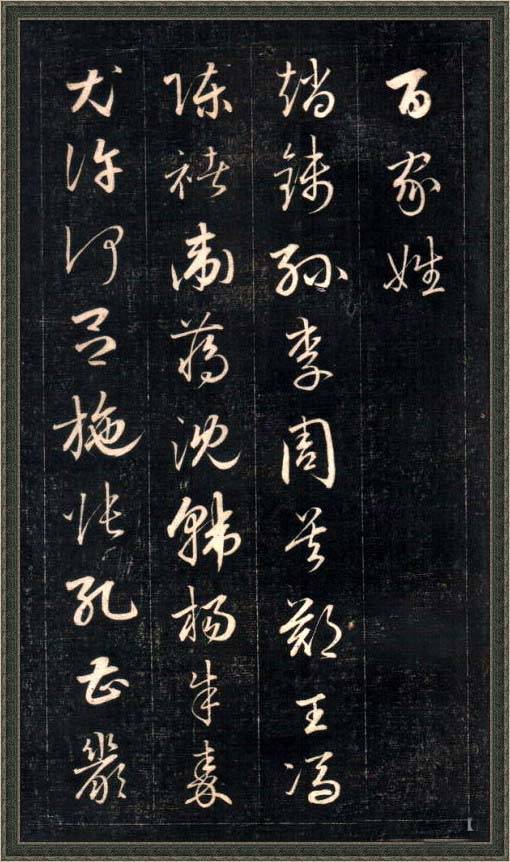 百家姓
趙錢孫李周吴鄭王馮
陳褚衛蔣沈韓楊朱秦
尤許何吕施張孔曹嚴